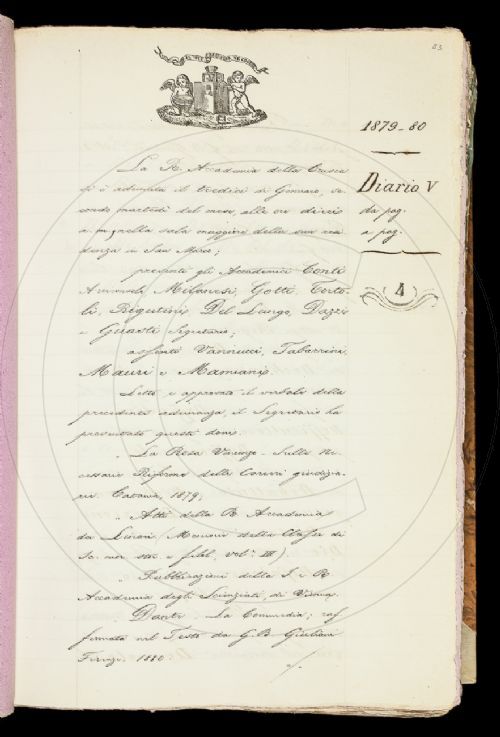 83
1879-80
Diario V
da pag.
a pag.
4
La R. Accademia della Crusca
si è adunata il tredici di Gennaro, se-
condo martedì del mese, alle ore dieci
a. m. nella sala maggiore della sua resi-
denza in San Marco;
presenti gli Accademici Conti
Arciconsolo, Milanesi, Gotti, Torto-
li, Rigutini, Del Lungo, Dazzi
e Guasti Segretario;
assenti Vannucci, Tabarrini,
Mauri e Mamiani.
Letto e approvato il verbale della
precedente adunanza, il Segretario ha
presentato questi doni.
La Rosa Vincenzo - Sulla ne-
cessaria Riforma delle Carceri giudizia-
rie. Catania, 1879;
Atti della R. Accademia
dei Lincei (Memorie della Classe di
Sc. mor. stor. e filol. vol. III).
Pubblicazioni della I. e R.
Accademia degli Scienziati, di Vienna.
Dante, La Commedia; raf-
fermata nel Testo da G. B. Giuliani
Firenze. 1880